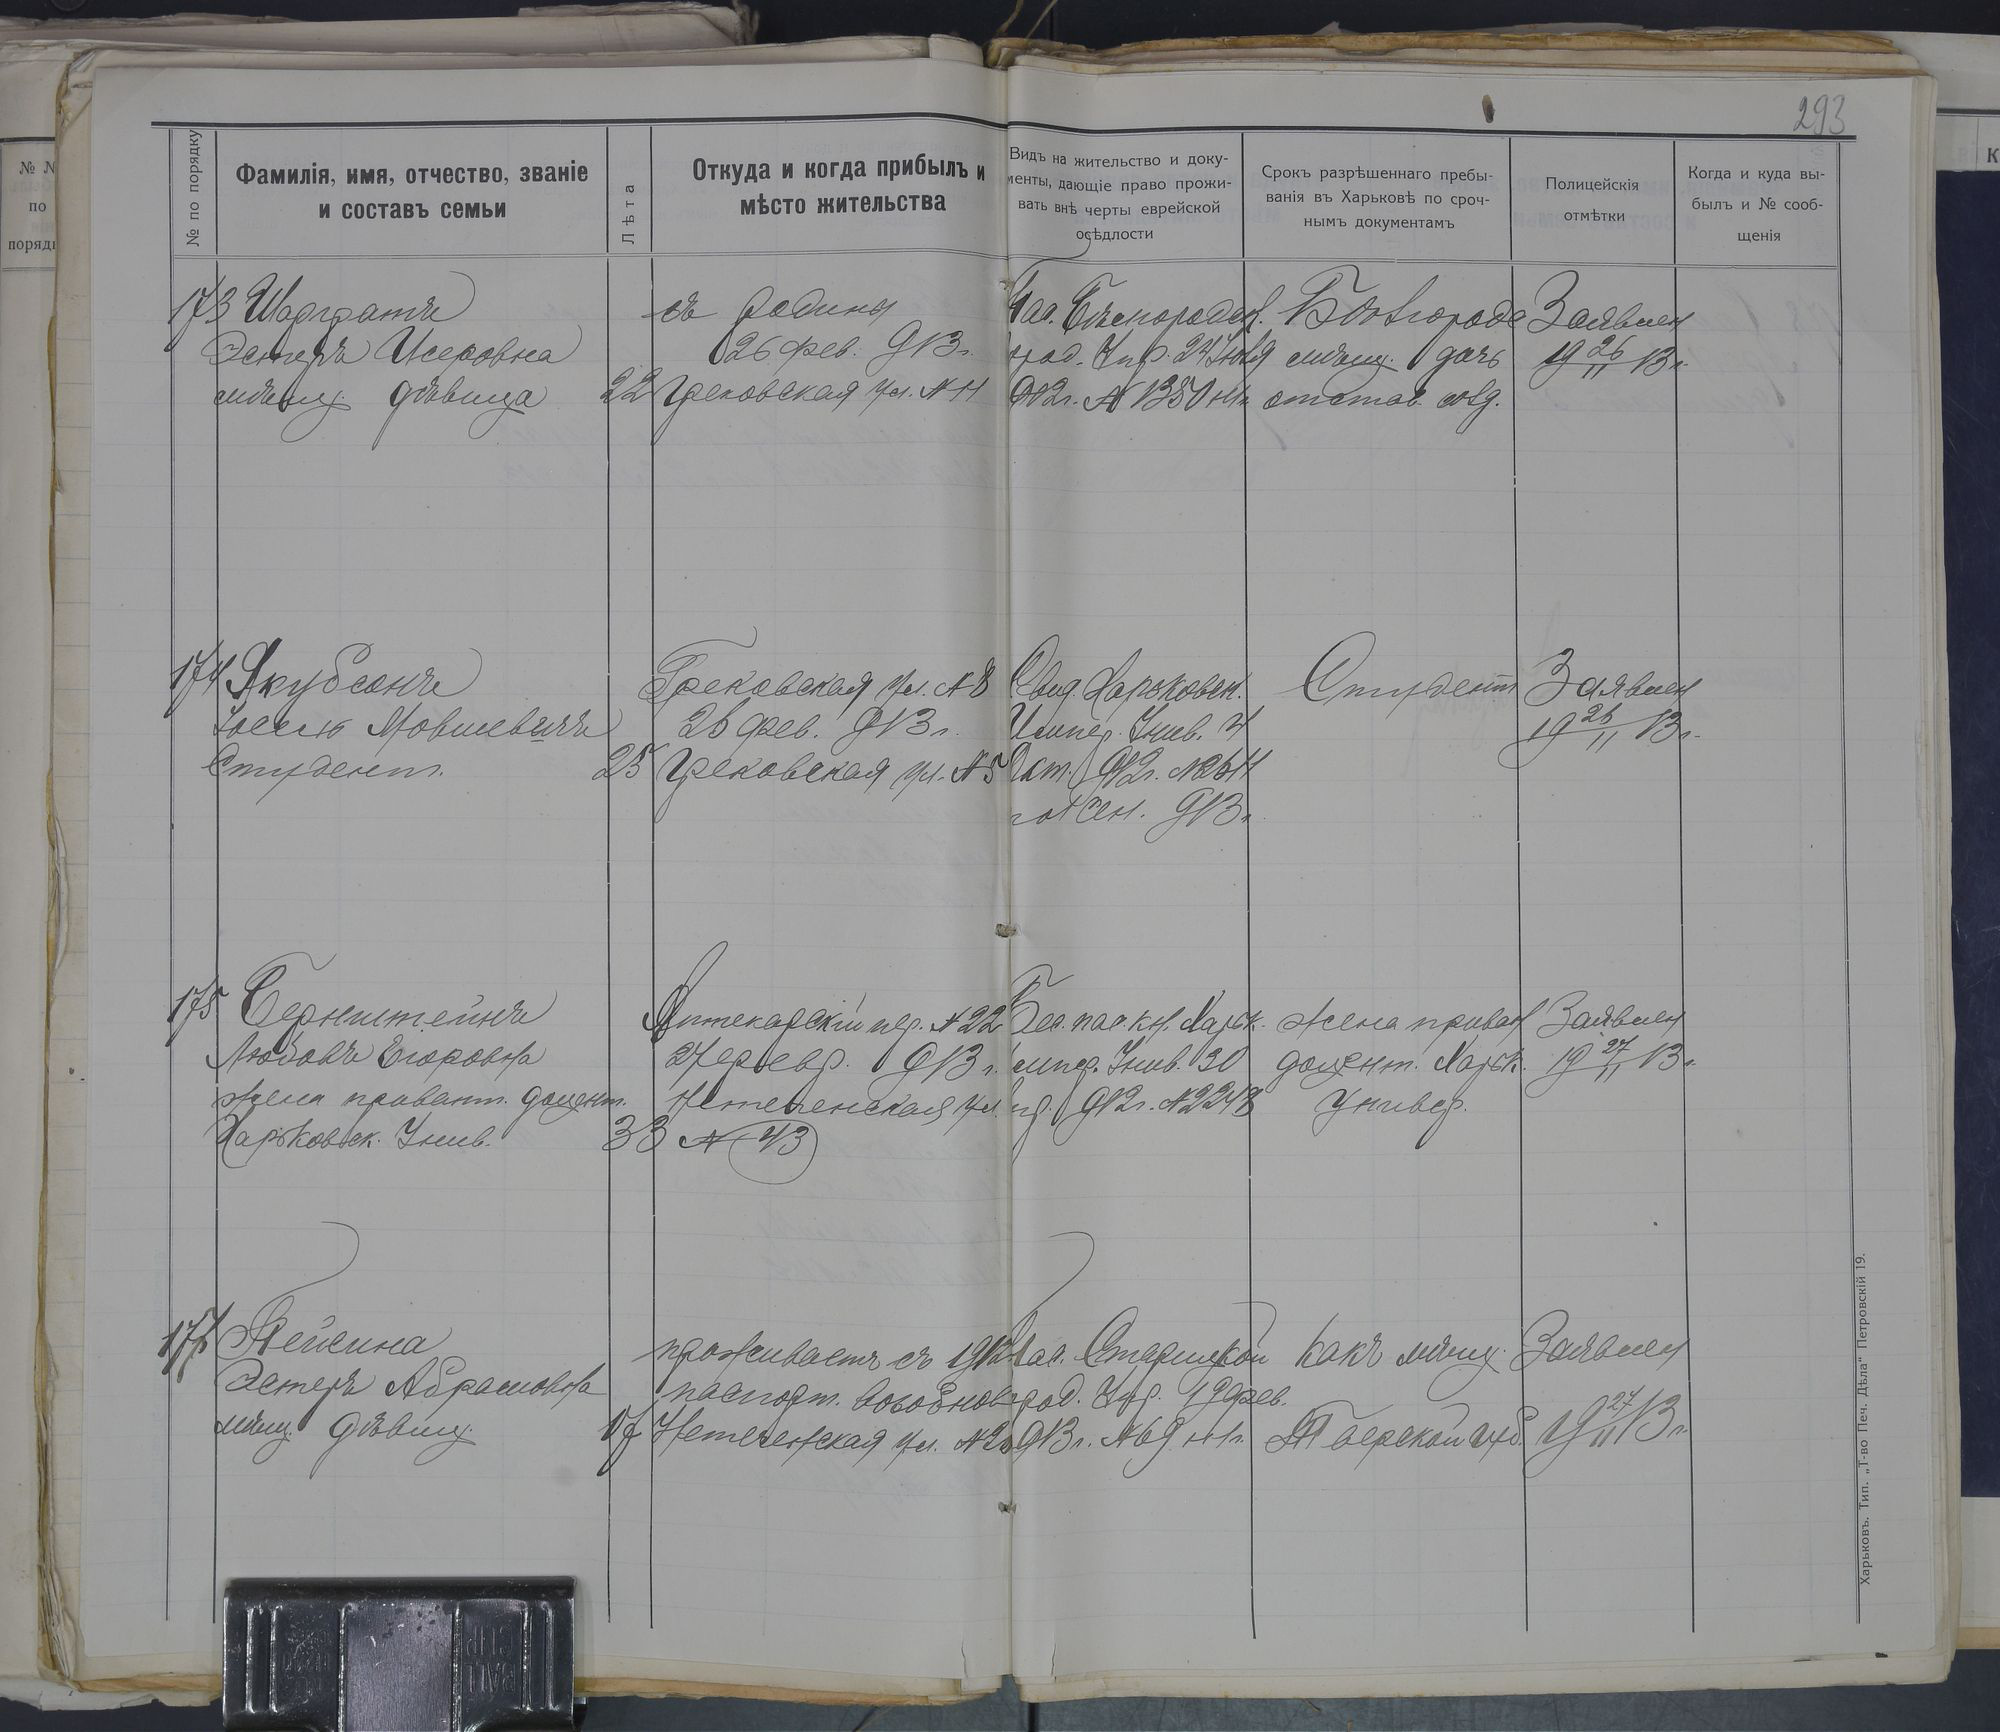 293
№ по порядку
Фамилія, имя, отчество, званіе
и составъ семьи
Лѣта
Откуда и когда прибылъ и
мѣсто жительства
Видъ на жительство и доку-
менты, дающіе право прожи-
вать внѣ черты еврейской
осѣдлости
Срокъ разрѣшеннаго пребы-
ванія въ Харьковѣ по сроч-
нымъ документамъ
Полицейскія
отмѣтки
Когда и куда вы-
былъ и № сооб-
щенія
№ №
по
порядку
К
173 Шаргратъ
Эстеръ Исеровна
мѣщ. дѣвица 22
съ родины
26 фев. 913 г.
Грековская ул. № 11
Пас. Бѣлгородск.
град. Упр.
912 г. № 1350
Бѣлгород
мѣщ. дочь
отстав. солд.
Заявлен
19 26/II 13 г.
174 Якубсонъ
Іосель Мовшевичъ
Студент. 25
Грековская ул. № 8
26 фев. 913 г.
Грековская ул. № 5
Свид. Харьковск.
Импер. Унив. 4
Окт. 912 г.
Сен. 913 г.
Студент
Заявлен
19 26/II 13 г.
175 Бернштейнъ
Любовь Егоровна
жена приват. доцент.
Харьковск. Унив. 33
Аптекарскій пер. № 22
27 февр. 913 г.
Нетеченская ул.
№ 43
Бес. пас. кн. Харьк.
Импер. Унив. 30
912 г. № 2248
жена приват
доцент. Харьк.
Универ.
Заявлен
19 27/II 13 г.
Тейсина
Эстеръ Абрамовна
мѣщ. дѣвиц. 17
проживаетъ съ 1912
паспорт. возобнов
Нетеченская ул.
Пас. Старицкой
град. Упр. 19 фев.
913 г. № 69
Какъ мѣщ.
Тверской губ.
Заявлен
19 27/II 13 г.
Харьковъ. Тип. „Т-во Печ. Дѣла“ Петровскій 19.